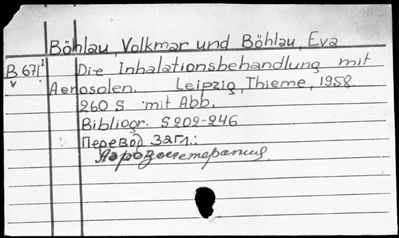 Böhlau, Volkmar und Böhlau, Eva
B671 I Die Inhalationsbehandlung mit
v Aerosolen. Leipzig, Thieme, 1958.
260 S mit Abb.
Bibliogr. S 202-246
Перевод загл.:
Аэрозолетерапия.